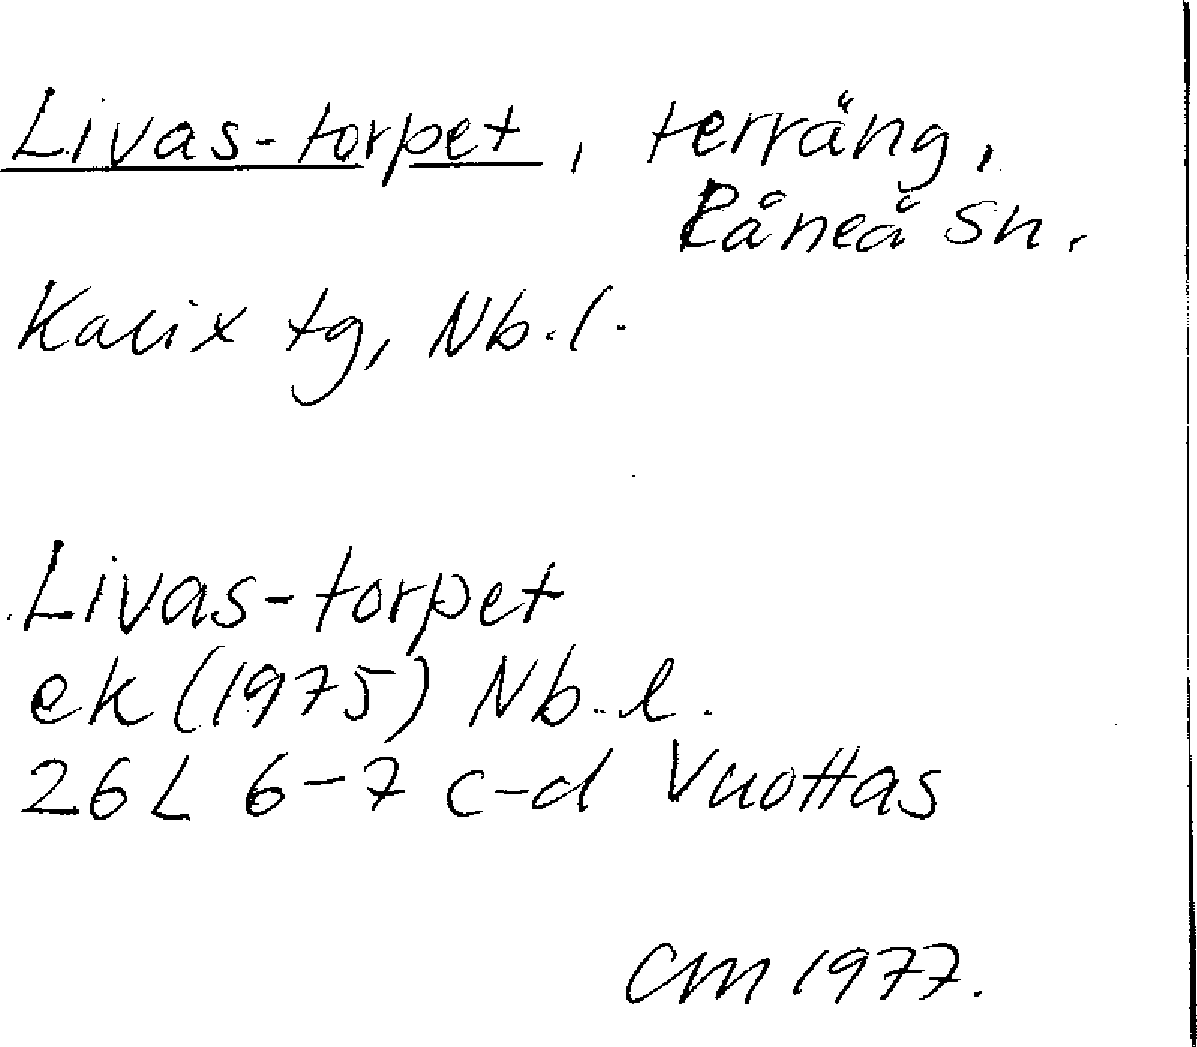 Livas-torpet, terräng,
Råneå sn.
Kalix tg, Nb.l.
Livas-torpet
ek (1975) Nb.l.
26L 6-7 c-d Vuottas
CM 1977.